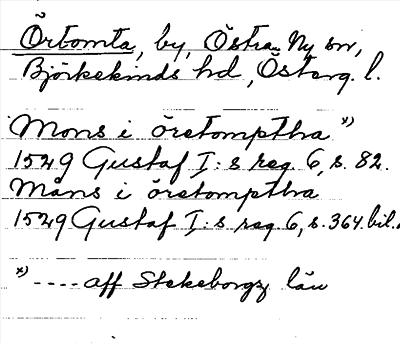 Örtomta, by, Östra Ny sn,
Björkekinds hd, Österg. l.
Mons i öretomptha x)
1529 Gustaf I:s reg 6, s. 82.
Måns i öretomptha
1529 Gustaf I:s reg 6, s. 364. bil.
x) ---- aff Stekeborgz län